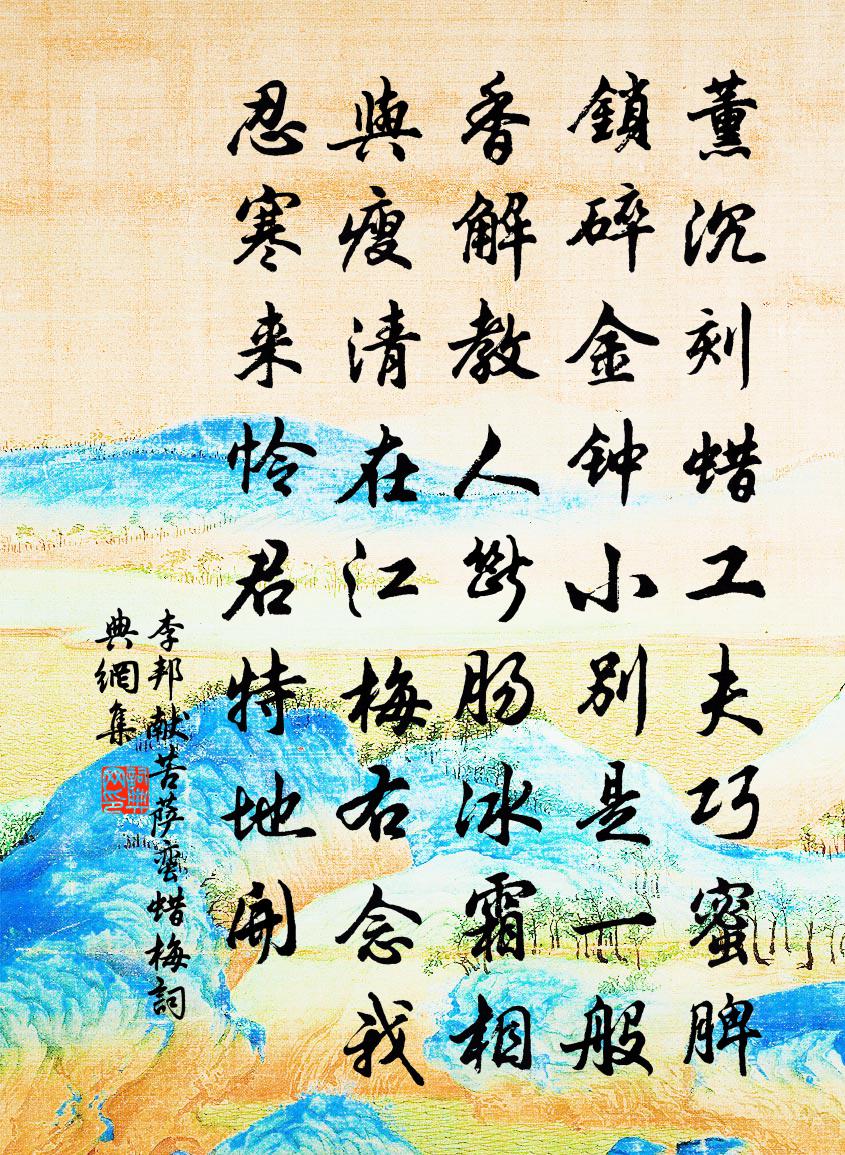 薰沉刻蜡工夫巧蜜脾
鎖碎金钟小别是一般
香解教人斷肠冰霜相
與瘦清在江梅右念我
忍寒来怜君特地開
李邦献菩萨蛮蜡梅詞
典網集